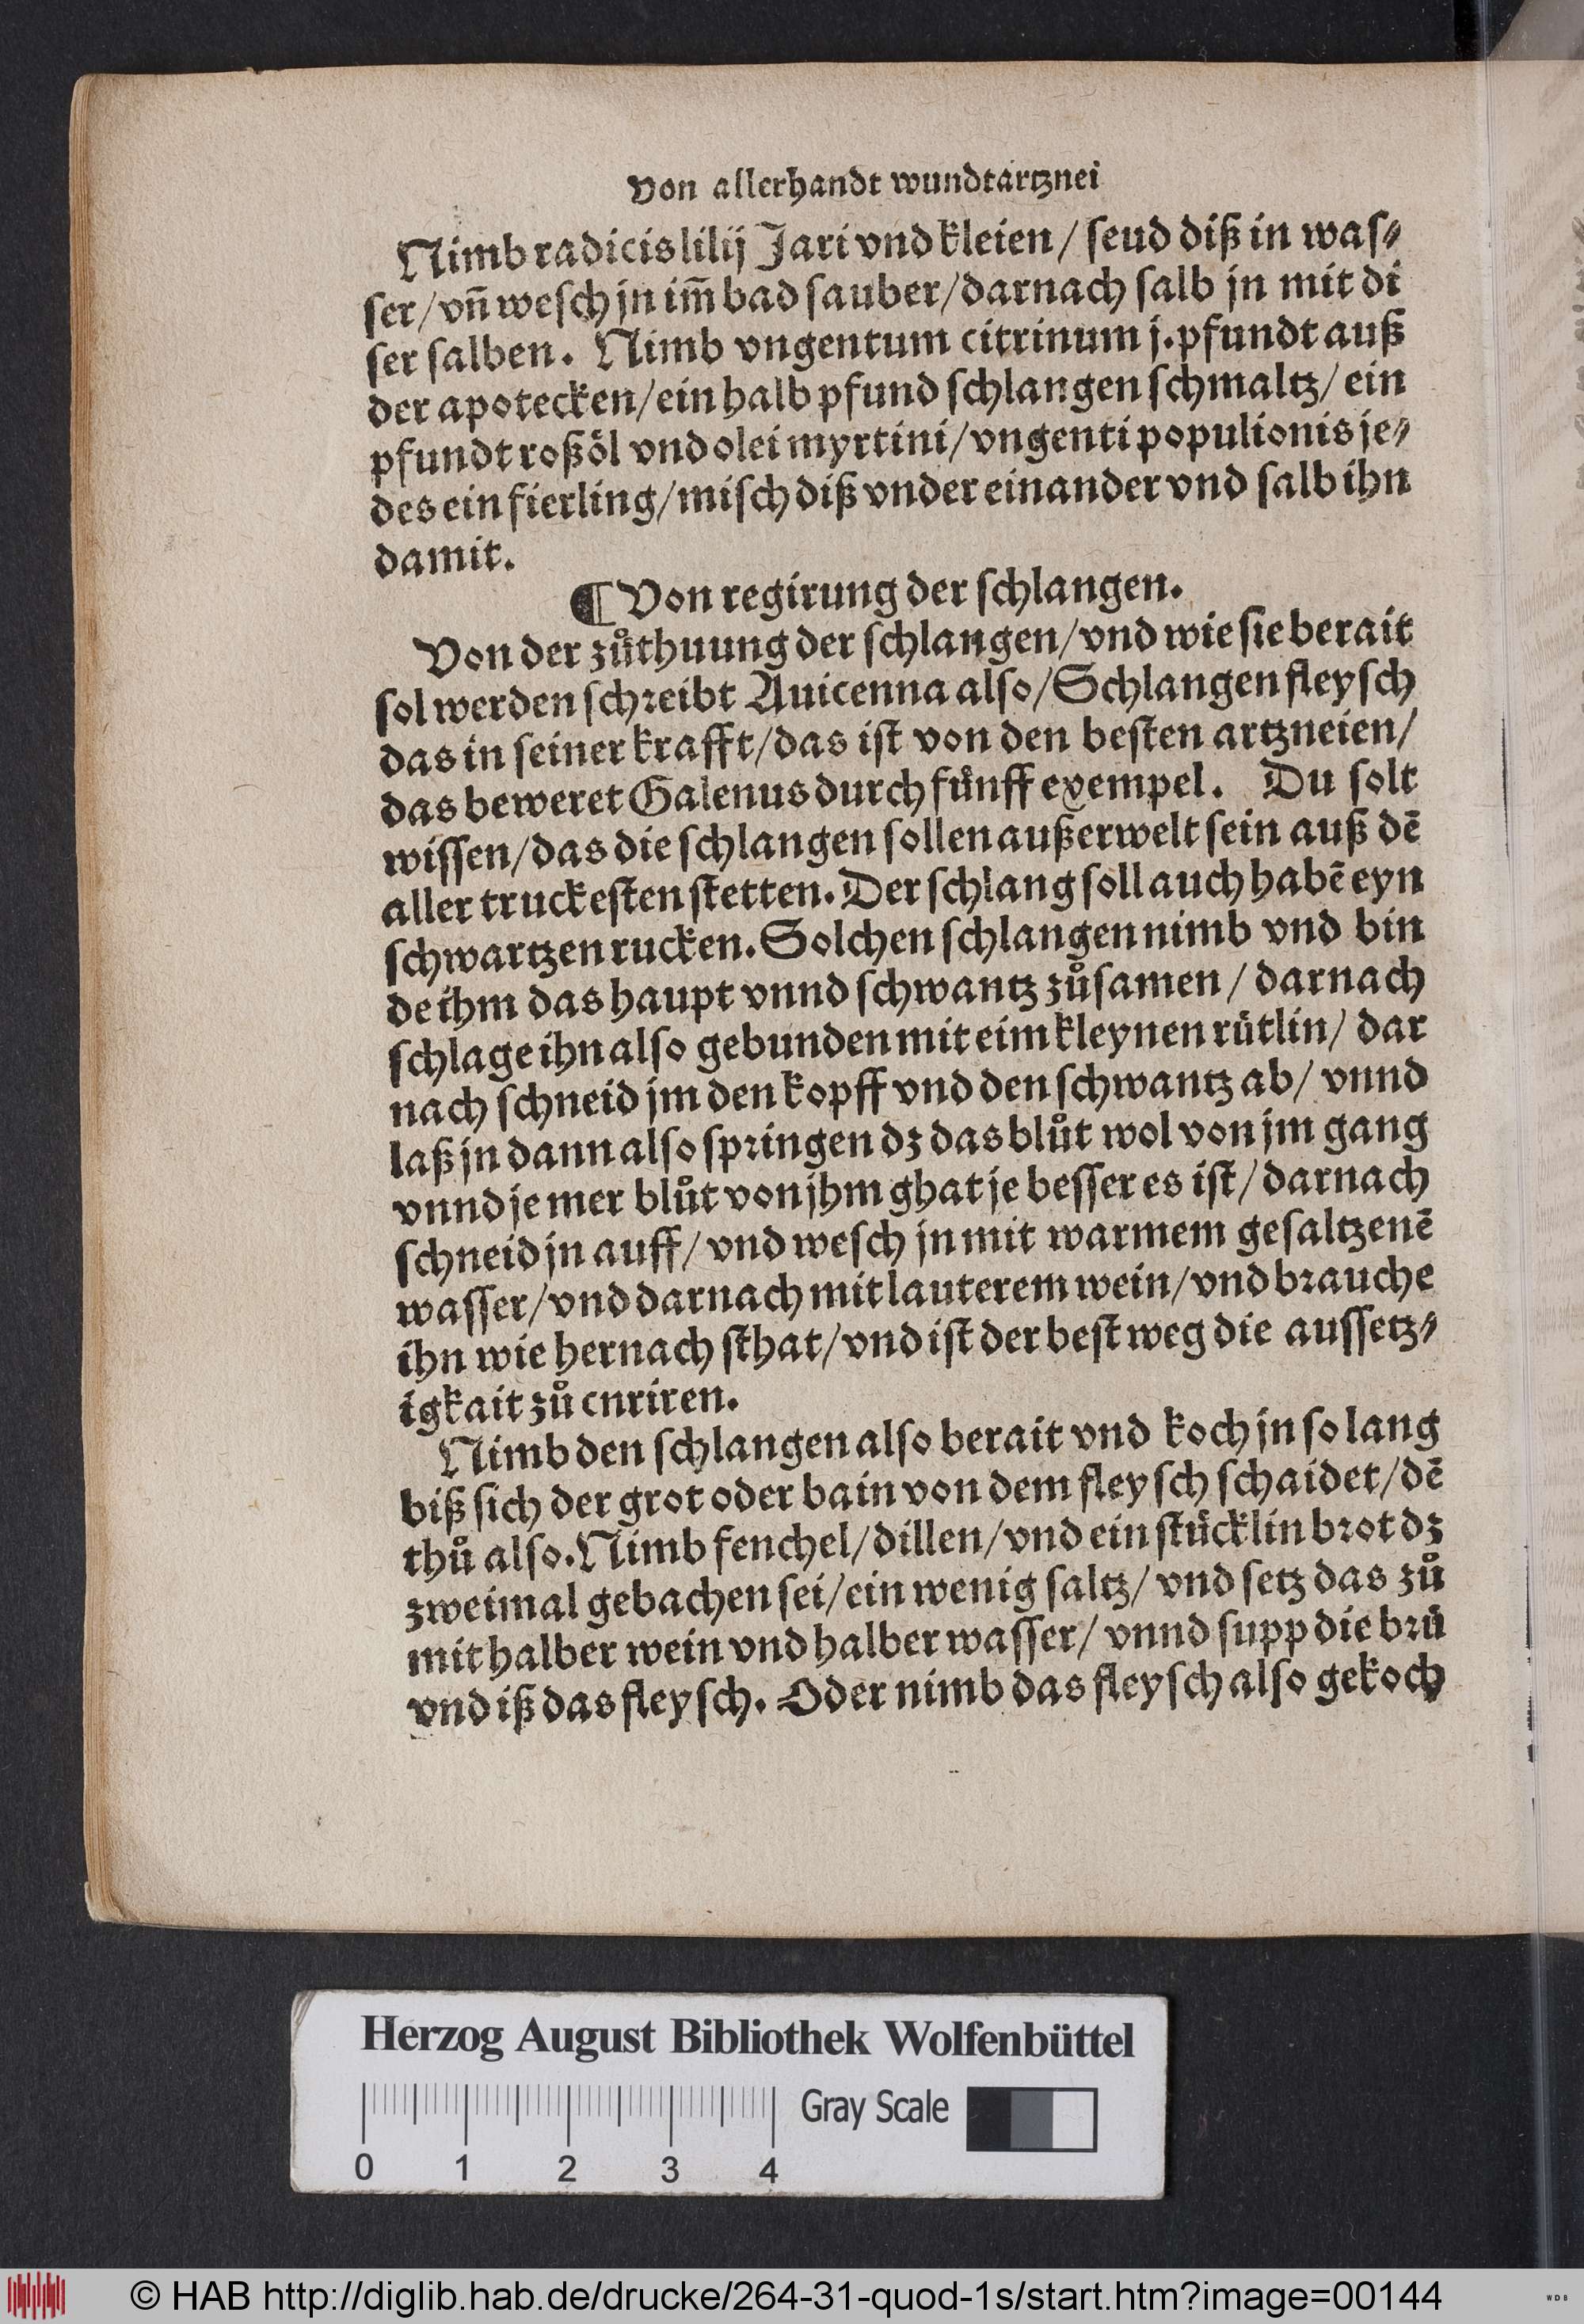 Von allerhandt wundtartznei
Nimb radicis lilij Jari vnd kleien / ſeud diß in waſ⸗
ſer / vñ weſch jn im̃ bad ſauber / darnach ſalb jn mit di
ſer ſalben. Nimb vngentum citrinum j. pfundt auß
der apotecken / ein halb pfund ſchlangen ſchmaltz / ein
pfundt roßoͤl vnd olei myrtini / vngenti populionis je⸗
des ein fierling / miſch diß vnder einander vnd ſalb ihn
damit.
¶ Von regirung der ſchlangen.
Von der zuͦthuung der ſchlangen / vnd wie ſie berait
ſol werden ſchꝛeibt Auicenna alſo / Schlangen fleyſch
das in ſeiner krafft / das iſt von den beſten artzneien /
das beweret Galenus durch fuͤnff exempel. Du ſolt
wiſſen / das die ſchlangen ſollen außerwelt ſein auß dē
aller truckeſten ſtetten. Der ſchlang ſoll auch habē eyn
ſchwartzen rucken. Solchen ſchlangen nimb vnd bin
de ihm das haupt vnnd ſchwantz zuͦſamen / darnach
ſchlage ihn alſo gebunden mit eim kleynen ruͤtlin / dar
nach ſchneid jm den kopff vnd den ſchwantz ab / vnnd
laß jn dann alſo ſpꝛingen dz das bluͦt wol von jm gang
vnnd je mer bluͦt von jhm ghat je beſſer es iſt / darnach
ſchneid jn auff / vnd weſch jn mit warmem geſaltzenē
waſſer / vnd darnach mit lauterem wein / vnd bꝛauche
ihn wie hernach ſthat / vnd iſt der beſt weg die auſſetz⸗
igkait zuͦ cnriren.
Nimb den ſchlangen alſo berait vnd koch jn ſo lang
biß ſich der grot oder bain von dem fleyſch ſchaidet / dē
thuͦ alſo. Nimb fenchel / dillen / vnd ein ſtuͤcklin bꝛot dz
zweimal gebachen ſei / ein wenig ſaltz / vnd ſetz das zuͦ
mit halber wein vnd halber waſſer / vnnd ſupp die bꝛuͤ
vnd iß das fleyſch. Oder nimb das fleyſch alſo gekoch
Herzog August Bibliothek Wolfenbüttel
Gray Scale
0 1 2 3 4
© HAB http://diglib.hab.de/drucke/264-31-quod-1s/start.htm?image=00144
WDB